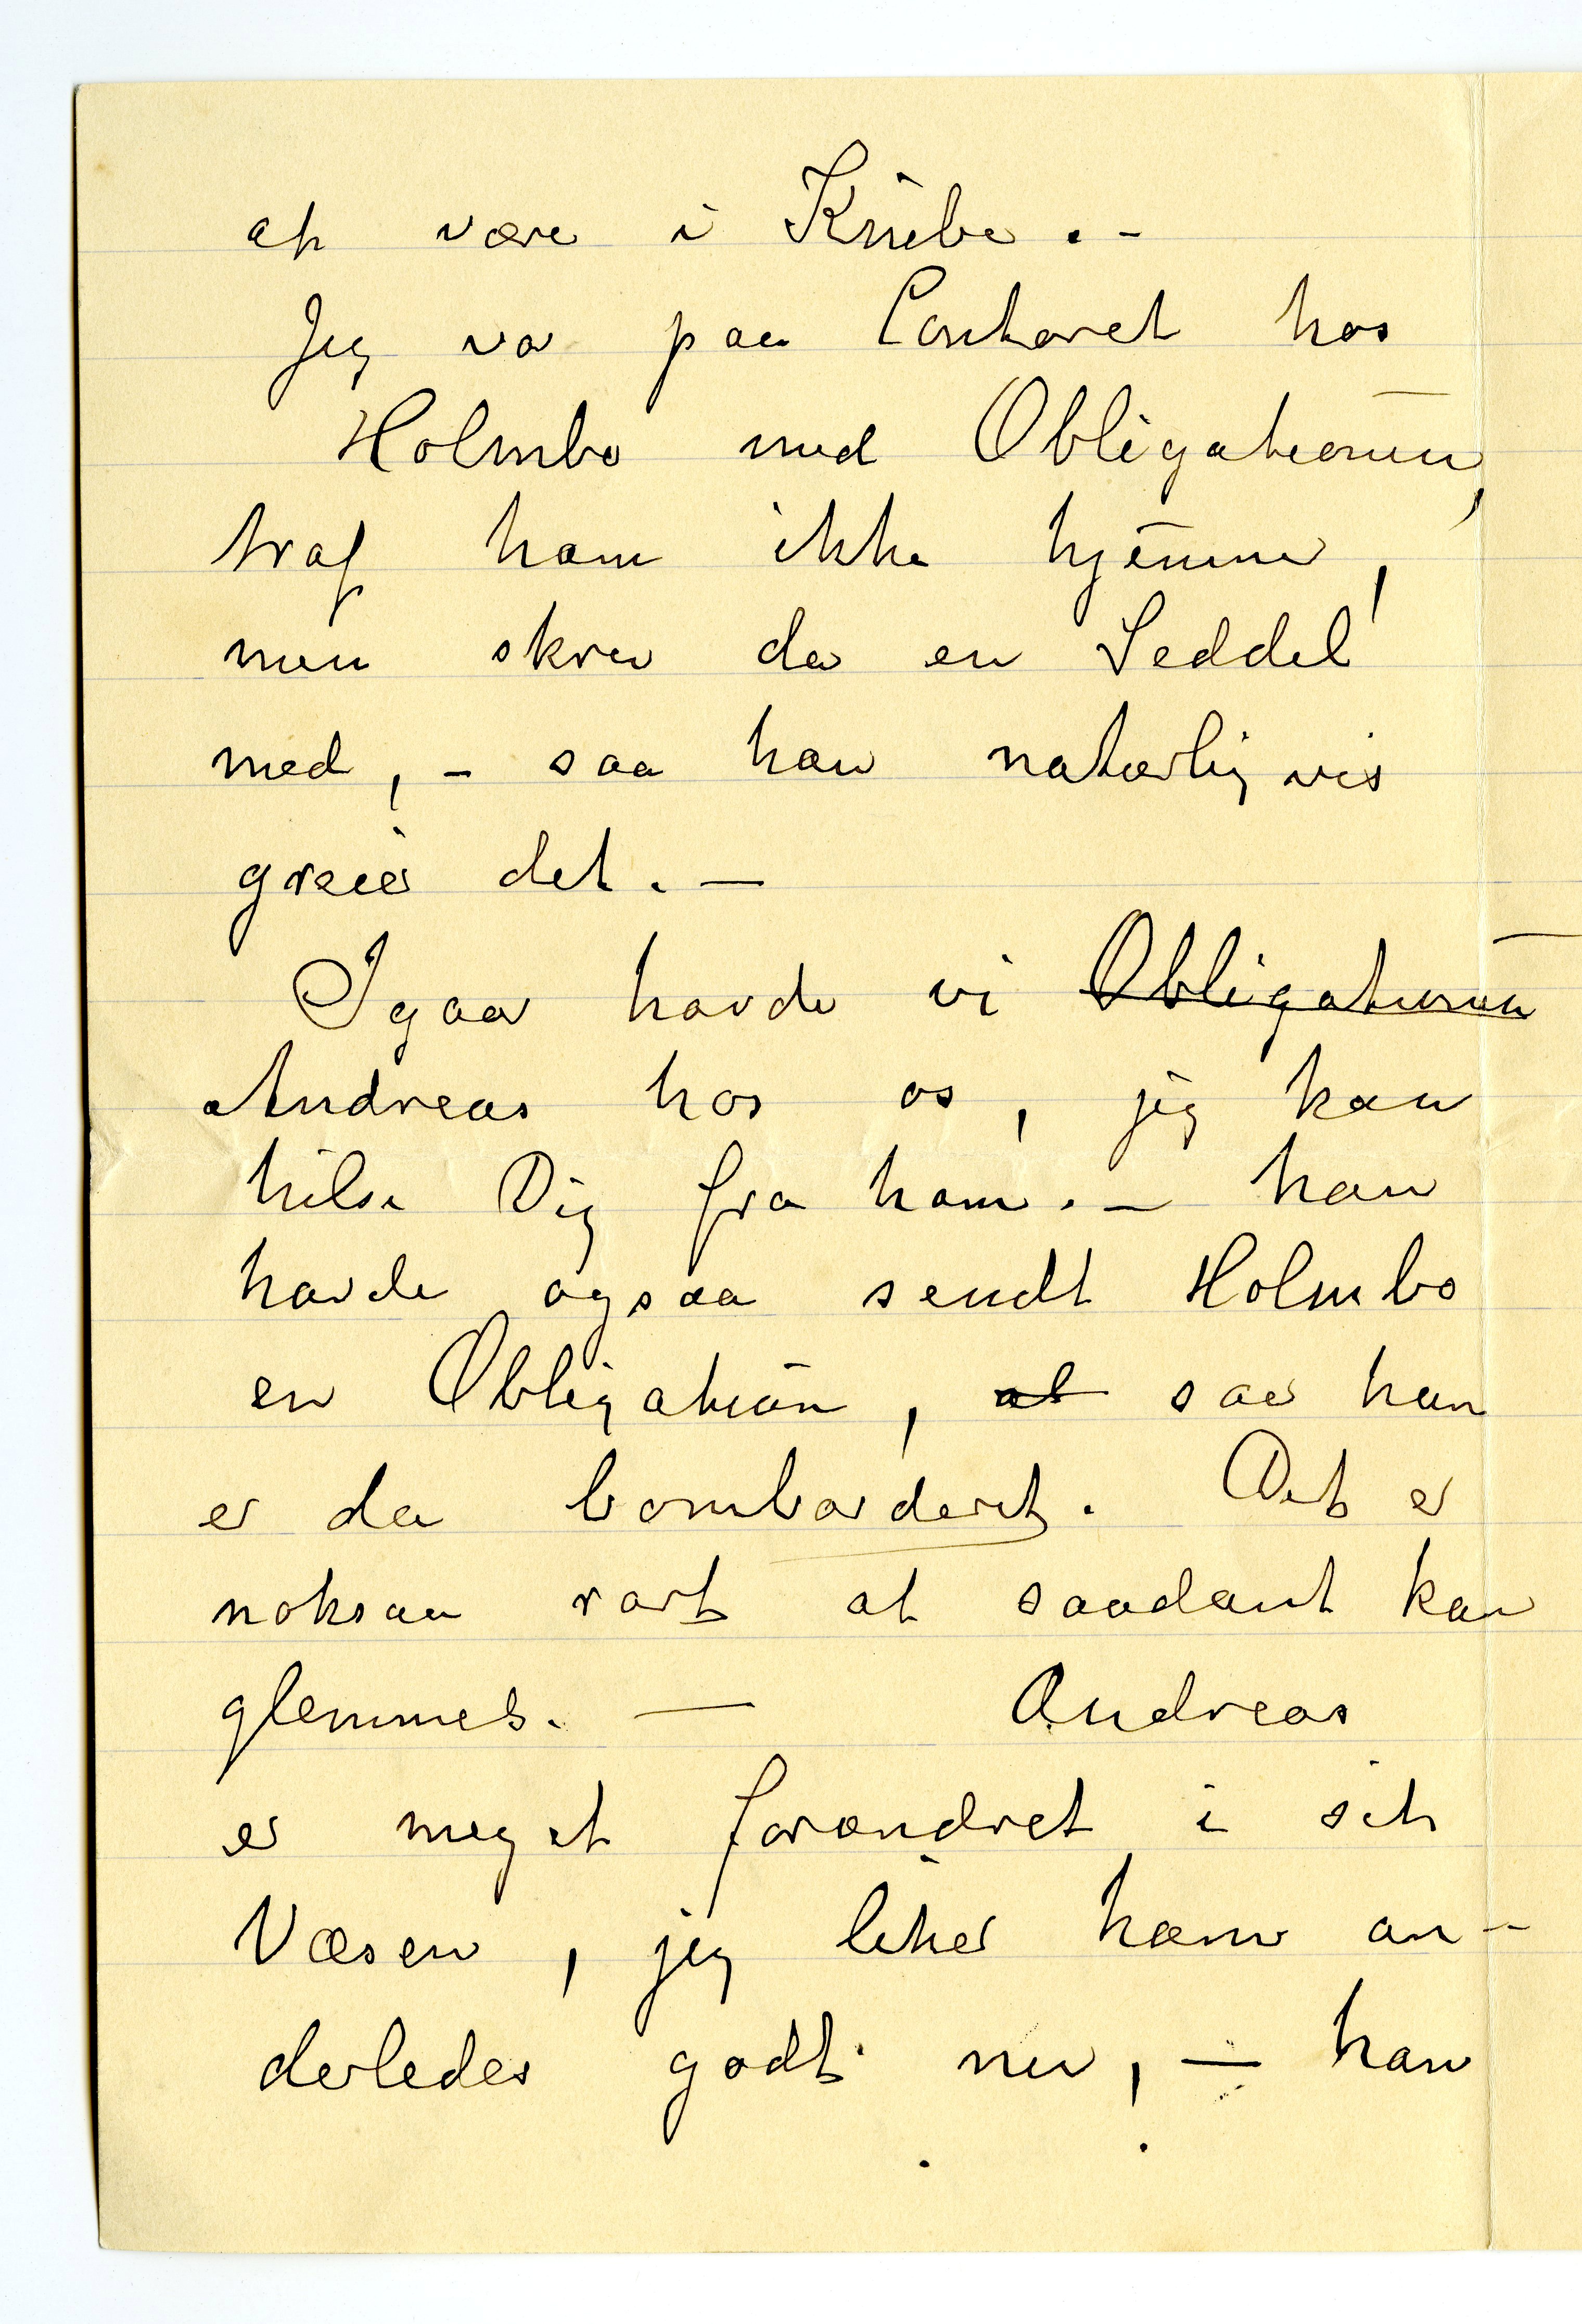 at være i Knibe. –
Jeg var paa Contoret hos
Holmbo med Obligationen,
traf ham ikke hjemme,
men skrev da en Seddel
med, – saa han naturligvis
greier det. —
Igaar havde vi Obligationen
Andreas hos os, jeg kan
hilse Dig fra ham. – han
havde ogsaa sendt Holmbo
en Obligation, at saa han
er da bombarderet. Det er
noksaa rart at saadant kan
glemmes. — Andreas
er meget forandret i sit
Væsen, jeg liker ham an-
derledes godt nu, — han